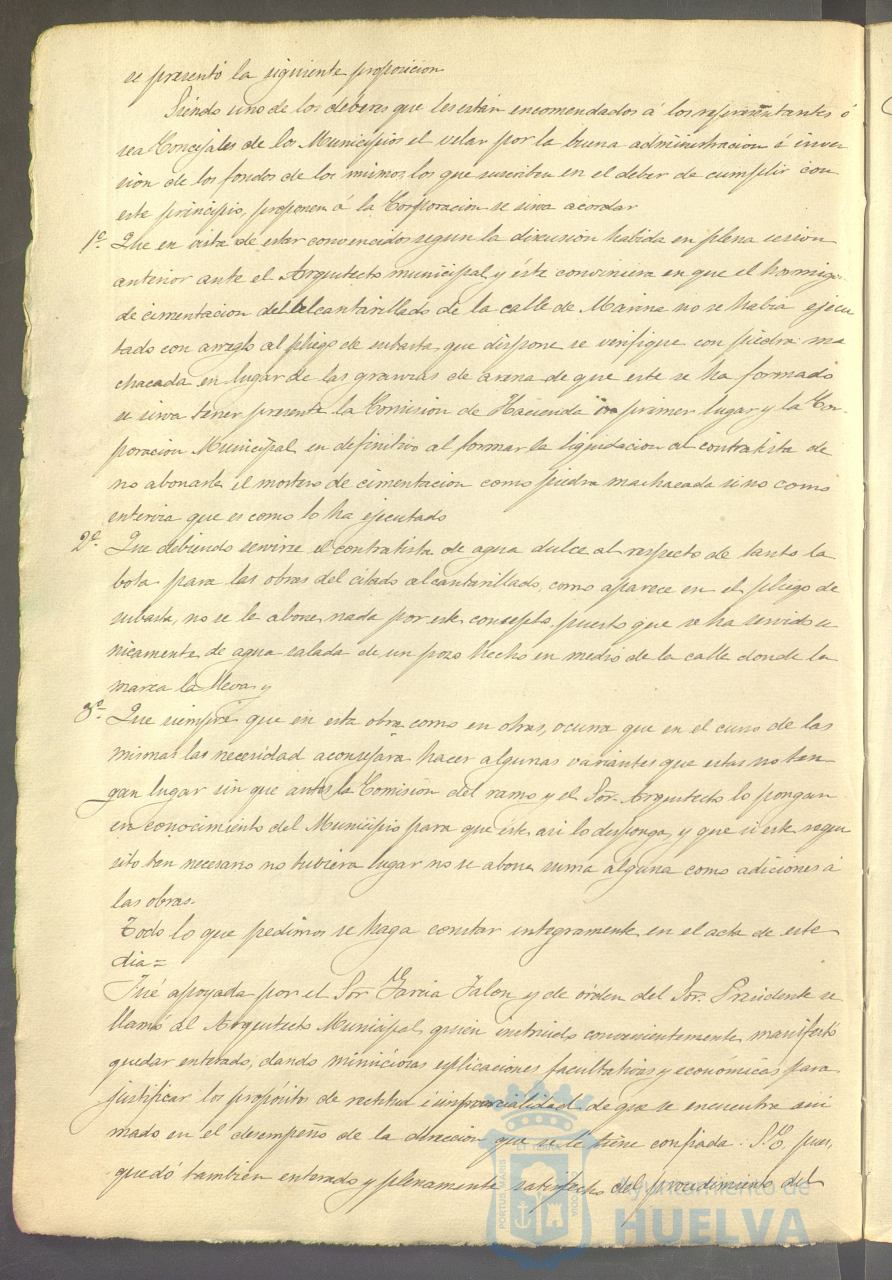 se presentó la siguiente proposicion
Siendo uno de los deberes que les están encomendados á los representantes ó
sea Concejales de los Municipios el velar por la buena administracion é inver
sión de los fondos de los mismos, los que suscriben en el deber de cumplir con
este principio, proponen á la Corporacion se sirva acordar
1º. Que en vista de estar convencidos segun la discusión habida en plena sesion
anterior ante el Arquitecto municipal y éste conviniera en que el hormigo-
de cimentacion del alcantarillado de la calle de Marina no se habia ejecu
tado con arreglo al pliego de subasta, que dispone se verifique con piedra ma
chacada en lugar de las granzas de arena de que este se ha formado
se sirva tener presente la Comisión de Hacienda en primer lugar y la Cor-
poracion Municipal, en definitivo al formar la liquidacion al contratista de
no abonarle el mortero de cimentacion como piedra machacada sino como
que es como lo ha ejecutado
2º. Que debiendo servirse el contratista de agua dulce al respecto de tanto la
bota para las obras del citado alcantarillado, como aparece en el pliego de
subasta, no se le abone nada por este concepto, puesto que se ha servido u
nicamente de agua salada de un pozo hecho en medio de la calle donde la
marea la lleva, y
3º. Que siempre que en esta obra como en otras, ocurra que en el curso de las
mismas las necesidad aconsejara hacer algunas variantes que estas no ten
gan lugar sin que antes la Comisión del ramo y el Sor. Arquitecto lo pongan
en conocimiento del Municipio para que éste asi lo disponga, y que si este requi
sito tan necesario no tubiera lugar no se abone suma alguna como adiciones á
las obras.
Todo lo que pedimos se haga constar integramente en el acta de este
dia=
Fué apoyada por el Sor. Garcia Jalon y de órden del Sor. Presidente se
llamó al Arquitecto Municipal, quien instruido convenientemente, manifestó
quedar enterado, dando minuciosas esplicaciones facultativas y económicas para
justificar los propósitos de rectitud é imparcialidad de que se encuentra ani
mado en el desempeño de la direccion que se le tiene confiada. S.E. pues,
quedó tambien enterado y plenamente satisfecho del procedimiento del
PORTUS MARIS ET TERRÆ CUSTODIA
Ayuntamiento de
HUELVA